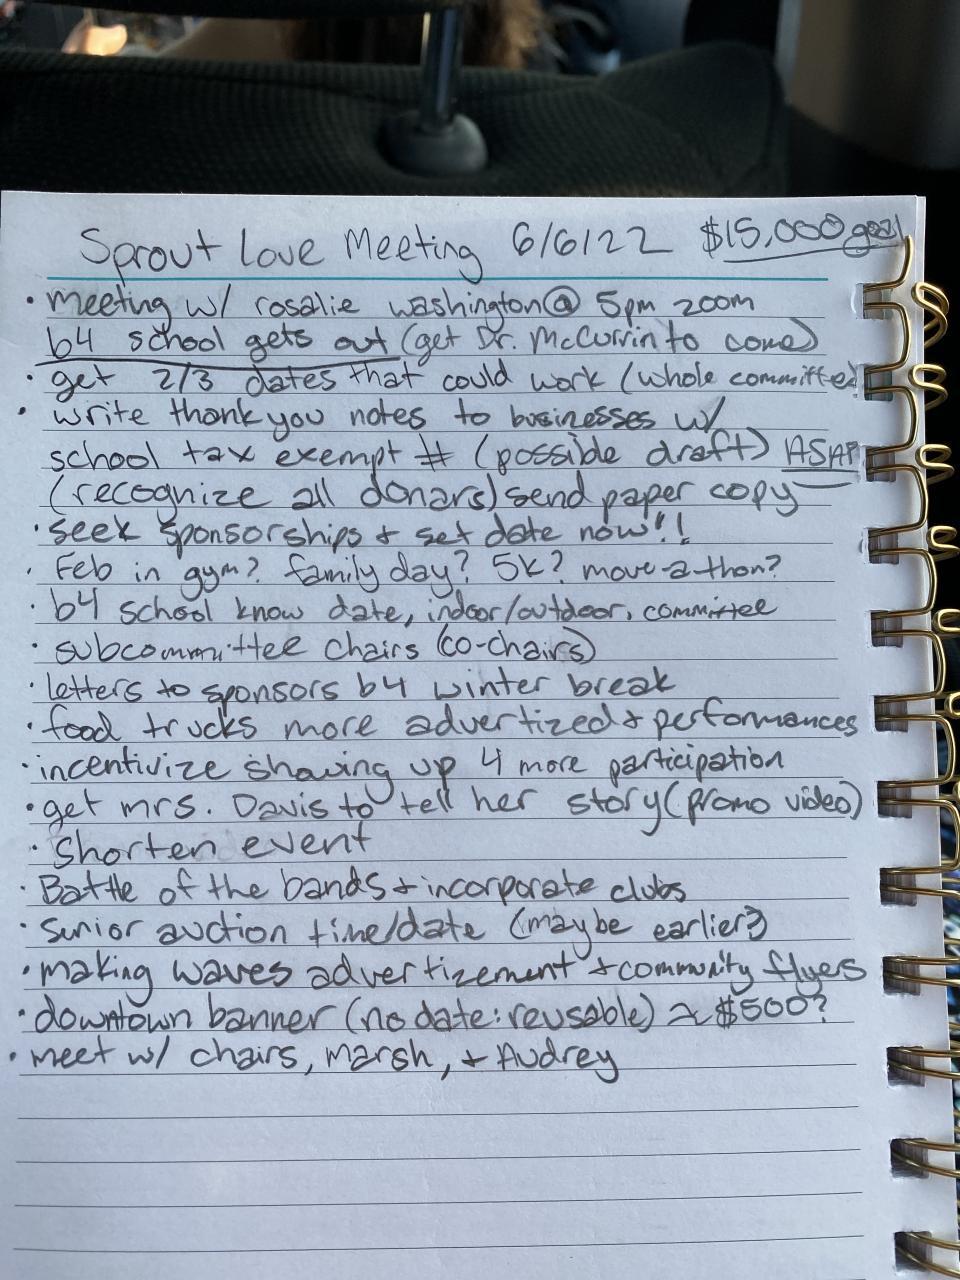 Sprout Love Meeting 6/6/22 $15,000 goal
• meeting w/ rosalie washington @ 5pm zoom
b4 school gets out (get Dr. McCurrin to come)
• get 2/3 dates that could work (whole committee)
• write thank you notes to businesses w/
school tax exempt # (possible draft) ASAP
(recognize all donars) send paper copy
• seek sponsorships + set date now!!
• Feb in gym? family day? 5k? move-a-thon?
• b4 school know date, indoor/outdoor, committee
• subcommittee chairs (co-chairs)
• letters to sponsors b4 winter break
• food trucks more advertized + performances
• incentivize showing up 4 more participation
• get mrs. Davis to tell her story (promo video)
• shorten event
• Battle of the bands + incorporate clubs
• senior auction time/date (maybe earlier?)
• making waves advertizement + community flyes
• downtown banner (no date: reusable) ≈ $500?
• meet w/ chairs, marsh, + Audrey